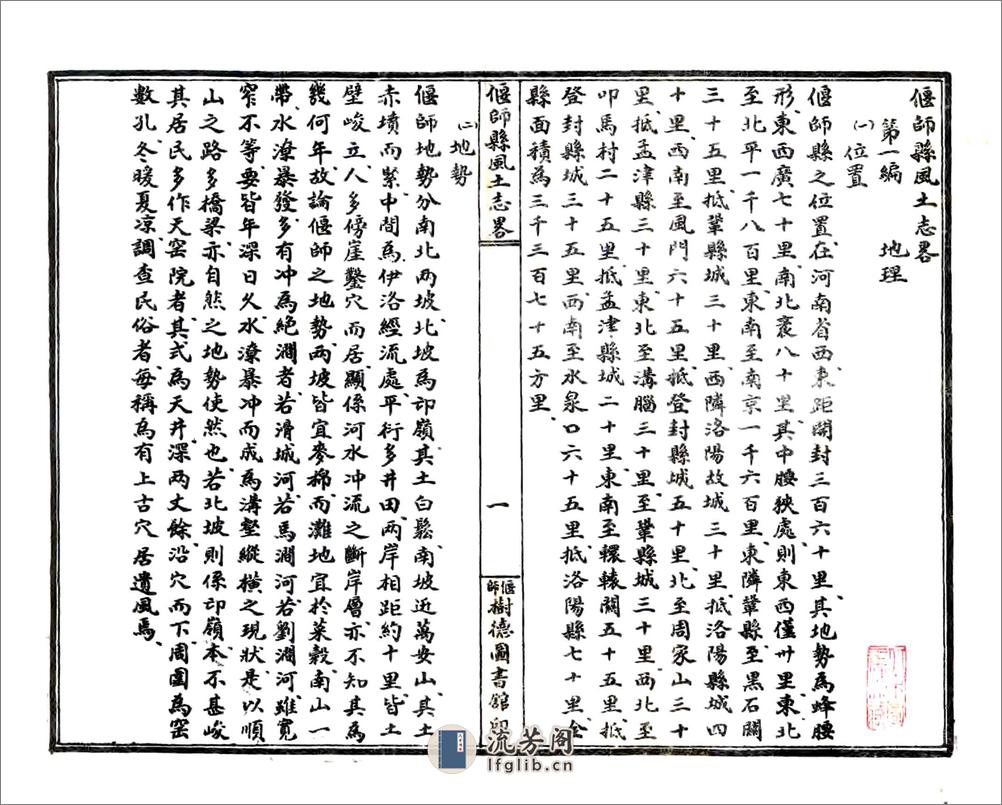 偃師縣風土志畧
第一編 地理
㈠位置
偃師縣之位置在河南省西東距開封三百六十里其地勢爲蜂腰
形東西廣七十里南北袤八十里其中腰狹處則東西僅卅里東北
至北平一千八百里東南至南京一千六百里東隣鞏縣至黑石關
三十五里抵鞏縣城三十里西隣洛陽故城三十里抵洛陽縣城四
十里西南至風門六十五里抵登封縣城五十里北至周家山三十
里抵孟津縣三十里東北至溝腦三十里至鞏縣城三十里西北至
叩馬村二十五里抵孟津縣城二十里東南至轘轅關五十五里抵
登封縣城三十五里西南至水泉口六十五里抵洛陽縣七十里全
縣面積爲三千三百七十五方里
偃師縣風土志畧 一 偃師樹德圖書館印
㈡地勢
偃師地勢分南北兩坡北坡爲邙嶺其土白鬆南坡近萬安山其土
赤墳而緊中間爲伊洛經流處平衍多井田兩岸相距約十里皆土
壁峻立人多傍崖鑿穴而居顯係河水冲流之斷岸層亦不知其爲
幾何年故論偃師之地勢兩坡皆宜麥棉而灘地宜於菜穀南山一
帶水潦暴發多有冲爲絕澗者若滑城河若馬澗河若劉澗河雖寬
窄不等要皆年深日久水潦暴冲而成爲溝壑縱橫之現狀是以順
山之路多橋梁亦自然之地勢使然也若北坡則係邙嶺本不甚峻
其居民多作天窑院者其式爲天井深兩丈餘沿穴而下周圍爲窑
數孔冬暖夏凉調查民俗者每稱爲有上古穴居遺風焉
流芳阁
lfglib.cn